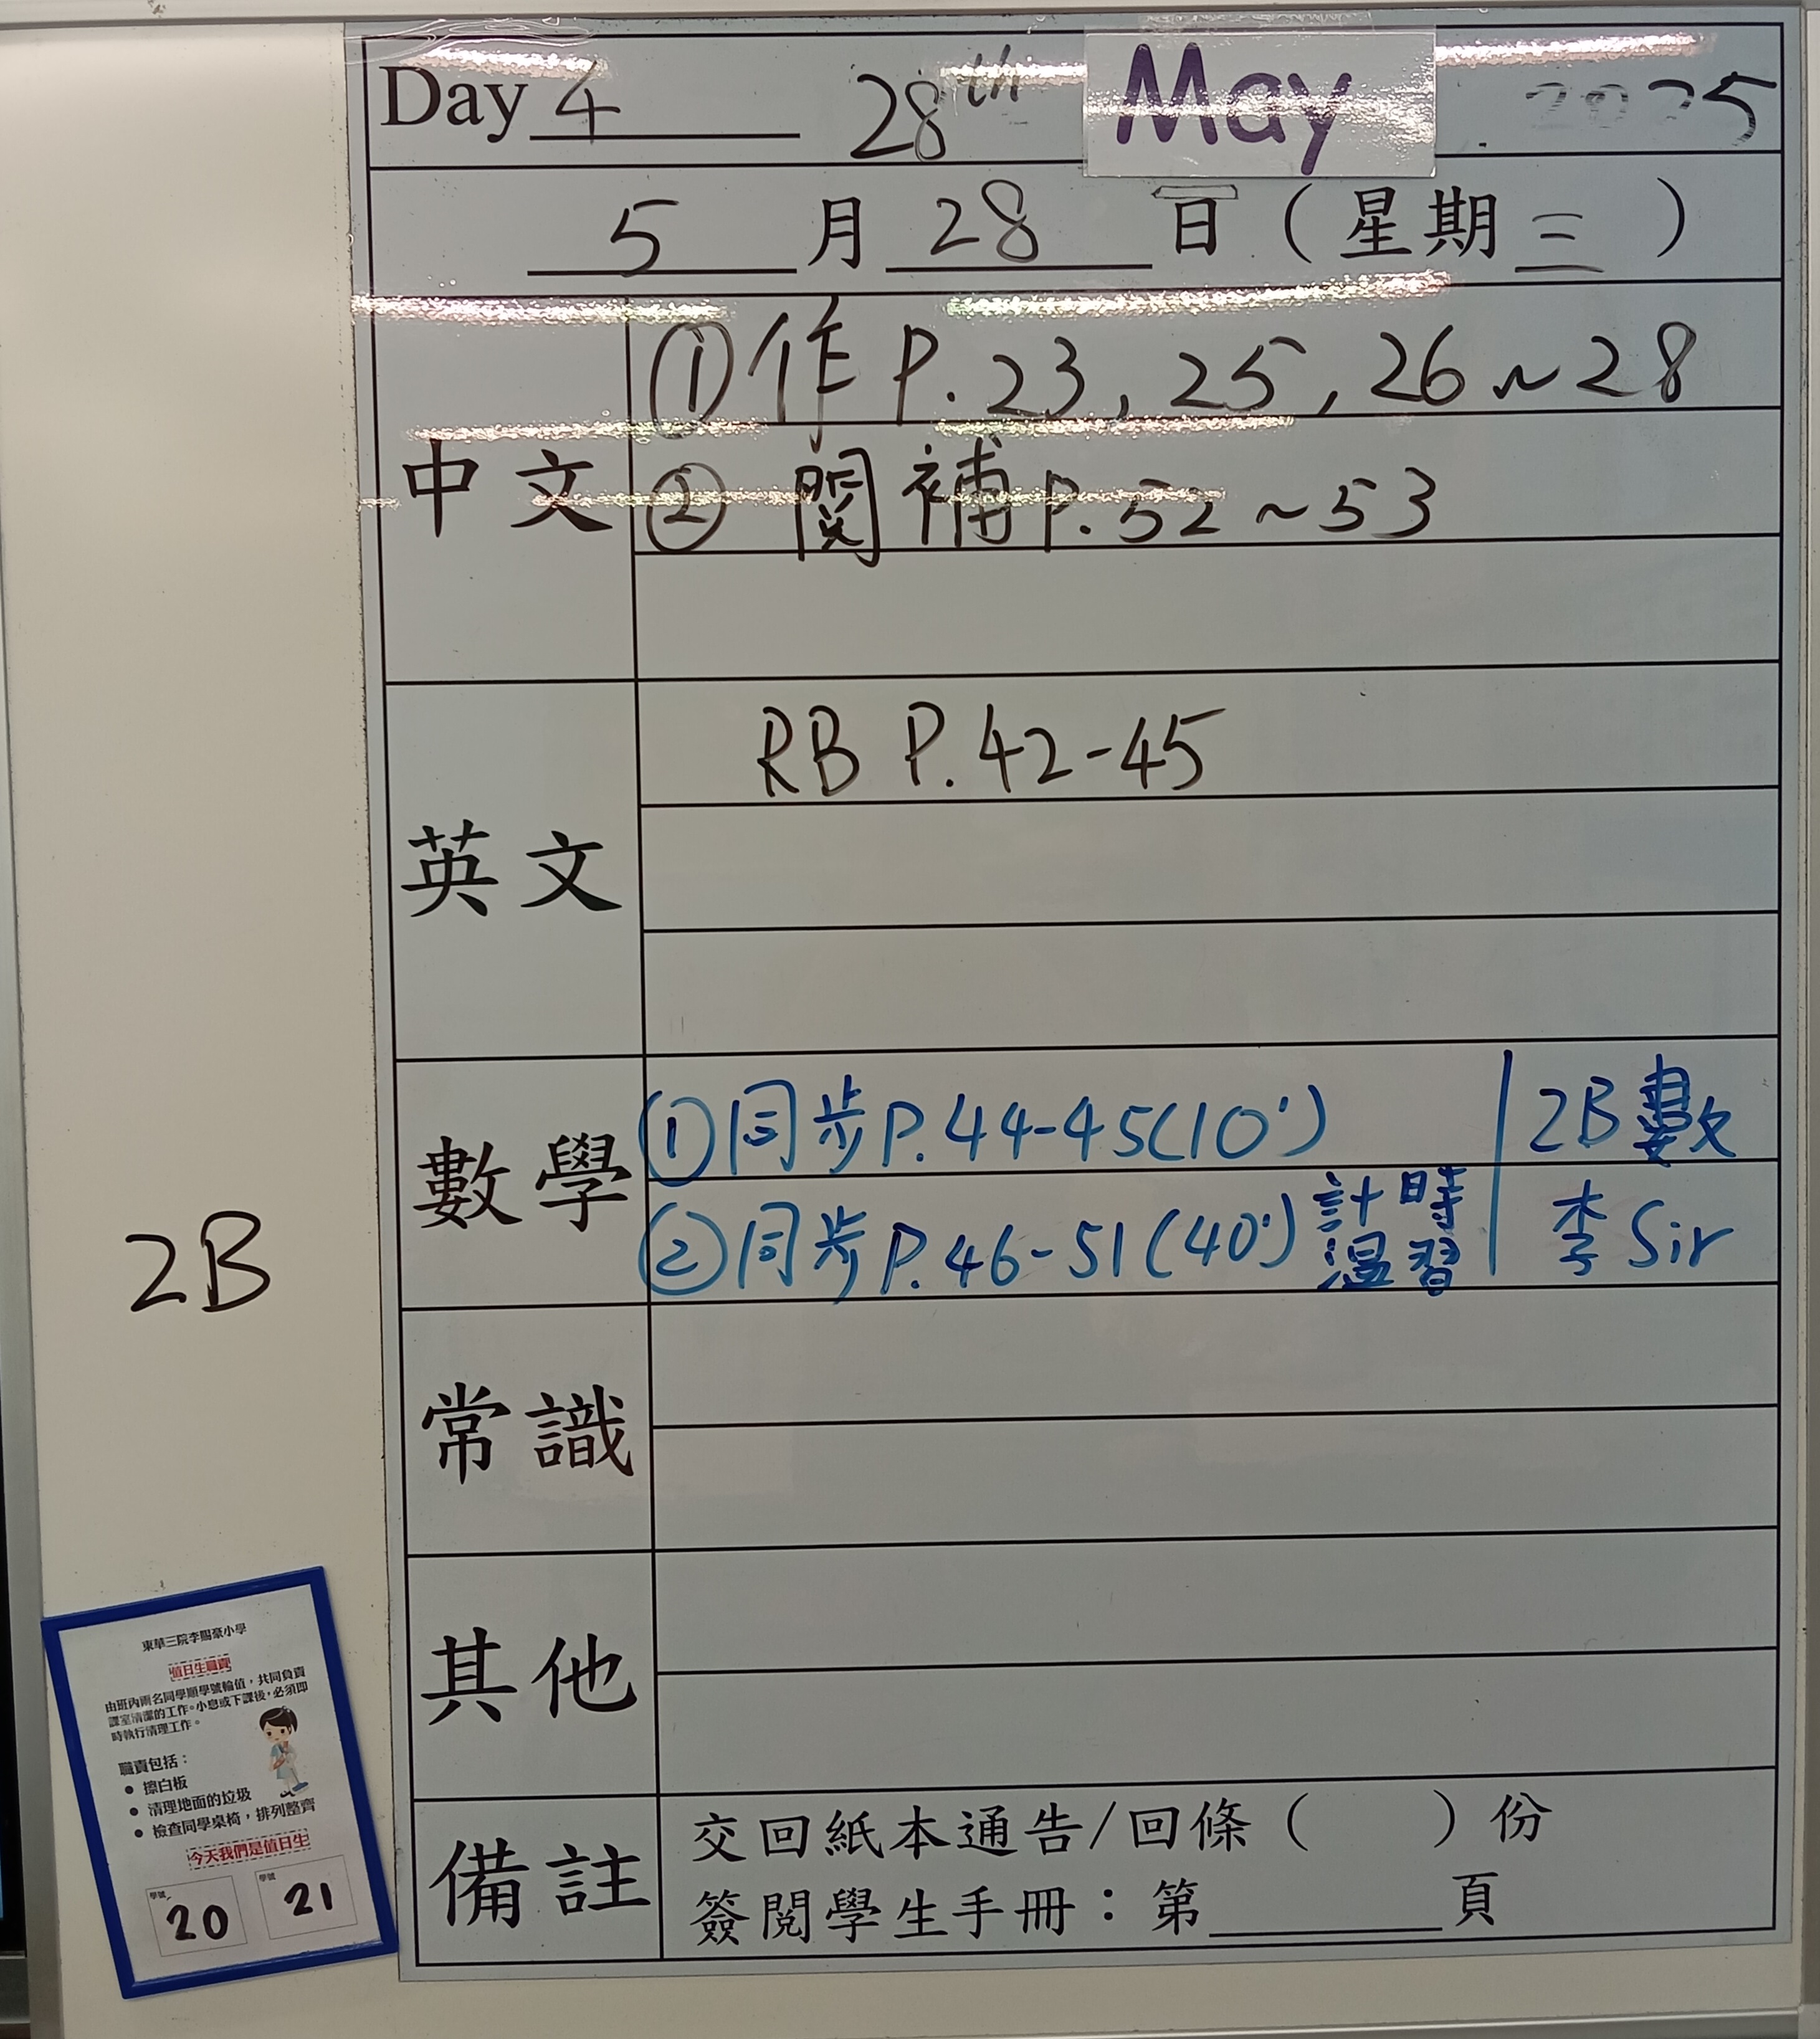 Day 4 28th May 2025
5 月 28 日 (星期 三 )
中文
① 作 P. 23, 25, 26 ~ 28
② 閱補 P. 52 ~ 53
英文
RB P. 42-45
數學
① 同步 P. 44-45 (10')
② 同步 P. 46-51 (40') 計時
溫習
2B 數
李 Sir
常識
其他
備註
交回紙本通告/回條( )份
簽閱學生手冊:第 頁
2B
東華三院李賜豪小學
值日生職責
由班內兩名同學順學號輪值,共同負責
課室清潔的工作。小息或下課後,必須即
時執行清理工作。
職責包括:
• 擦白板
• 清理地面的垃圾
• 檢查同學桌椅,排列整齊
今天我們是值日生
學號 20
學號 21